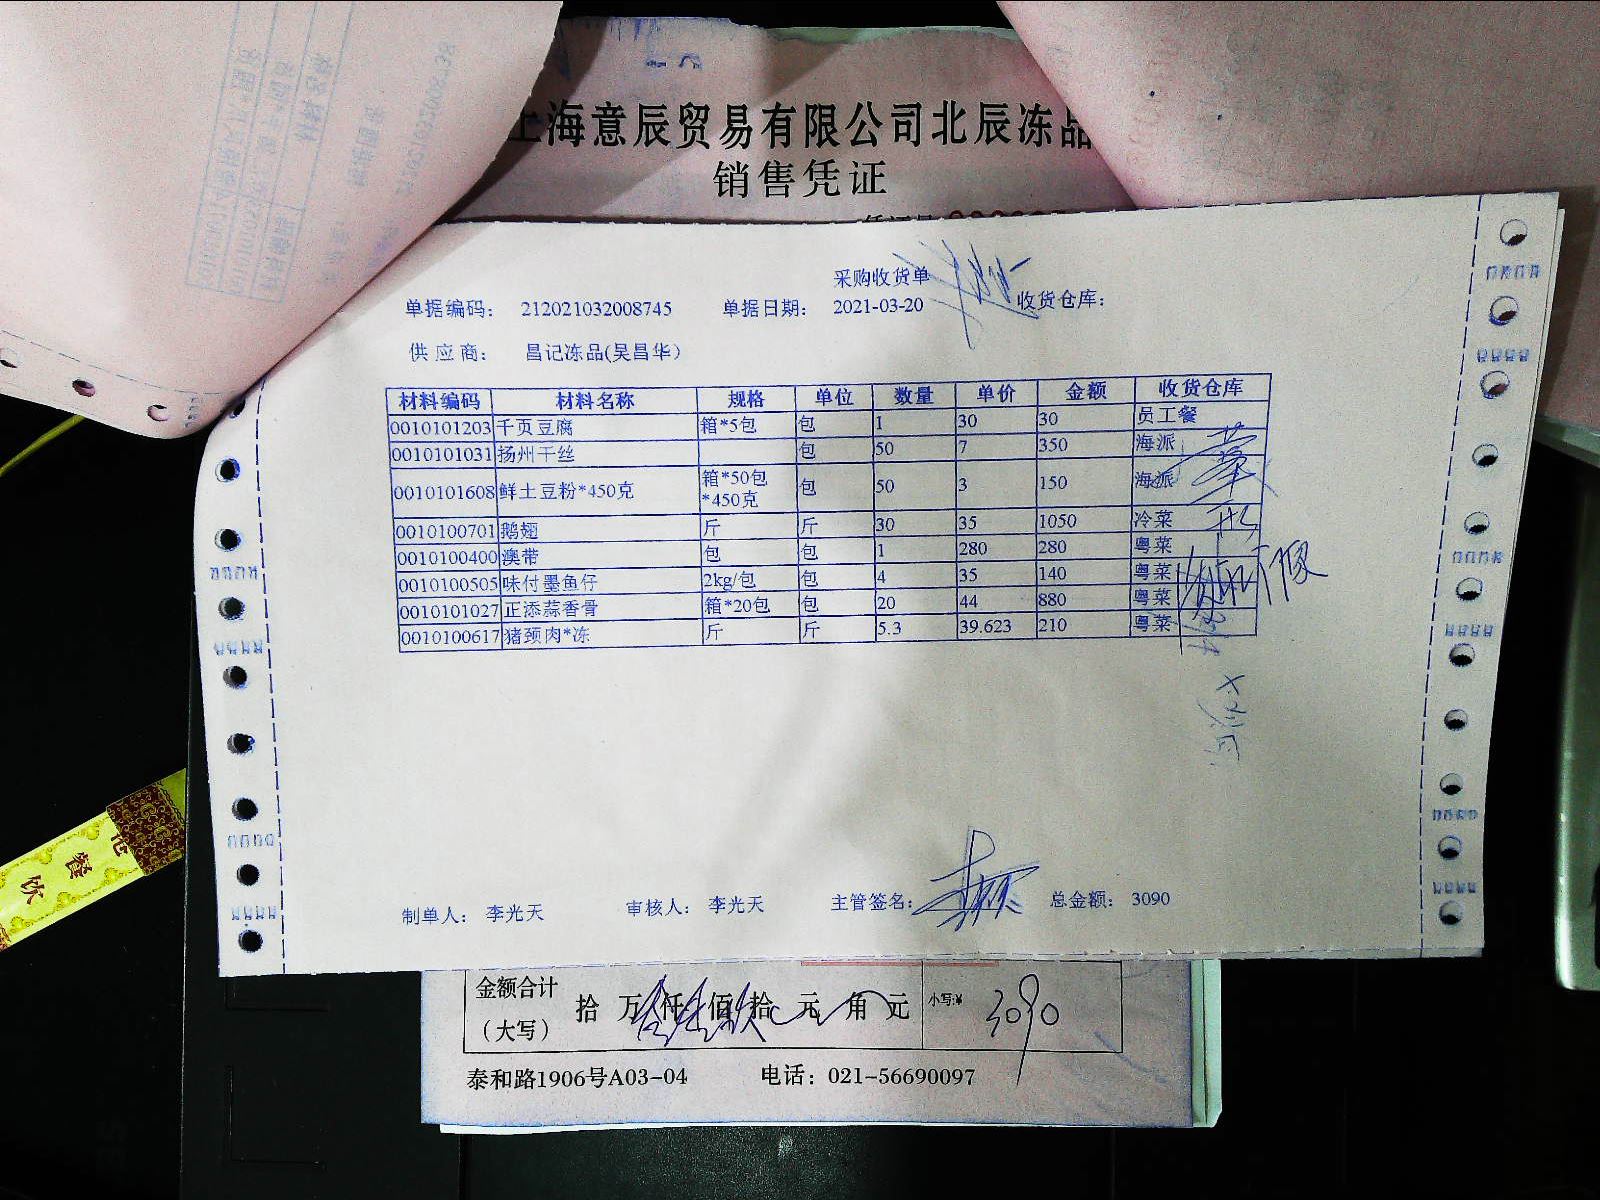 上海意辰贸易有限公司北辰冻品
销售凭证
采购收货单
单据编码: 212021032008745 单据日期: 2021-03-20 收货仓库:
供应商: 昌记冻品(吴昌华)
材料编码 材料名称 规格 单位 数量 单价 金额 收货仓库
0010101203 千页豆腐 箱*5包 包 1 30 30 员工餐
0010101031 扬州干丝 包 50 7 350 海派
0010101608 鲜土豆粉*450克 箱*50包*450克 包 50 3 150 海派
0010100701 鹅翅 斤 斤 30 35 1050 冷菜
0010100400 澳带 包 包 1 280 280 粤菜
0010100505 味付墨鱼仔 2kg/包 包 4 35 140 粤菜
0010101027 正添蒜香骨 箱*20包 包 20 44 880 粤菜
0010100617 猪颈肉*冻 斤 斤 5.3 39.623 210 粤菜
制单人: 李光天 审核人: 李光天 主管签名: 总金额: 3090
金额合计(大写) 拾 万 仟 佰 拾 元 角 元 小写:¥ 3090
泰和路1906号A03-04 电话: 021-56690097
餐饮